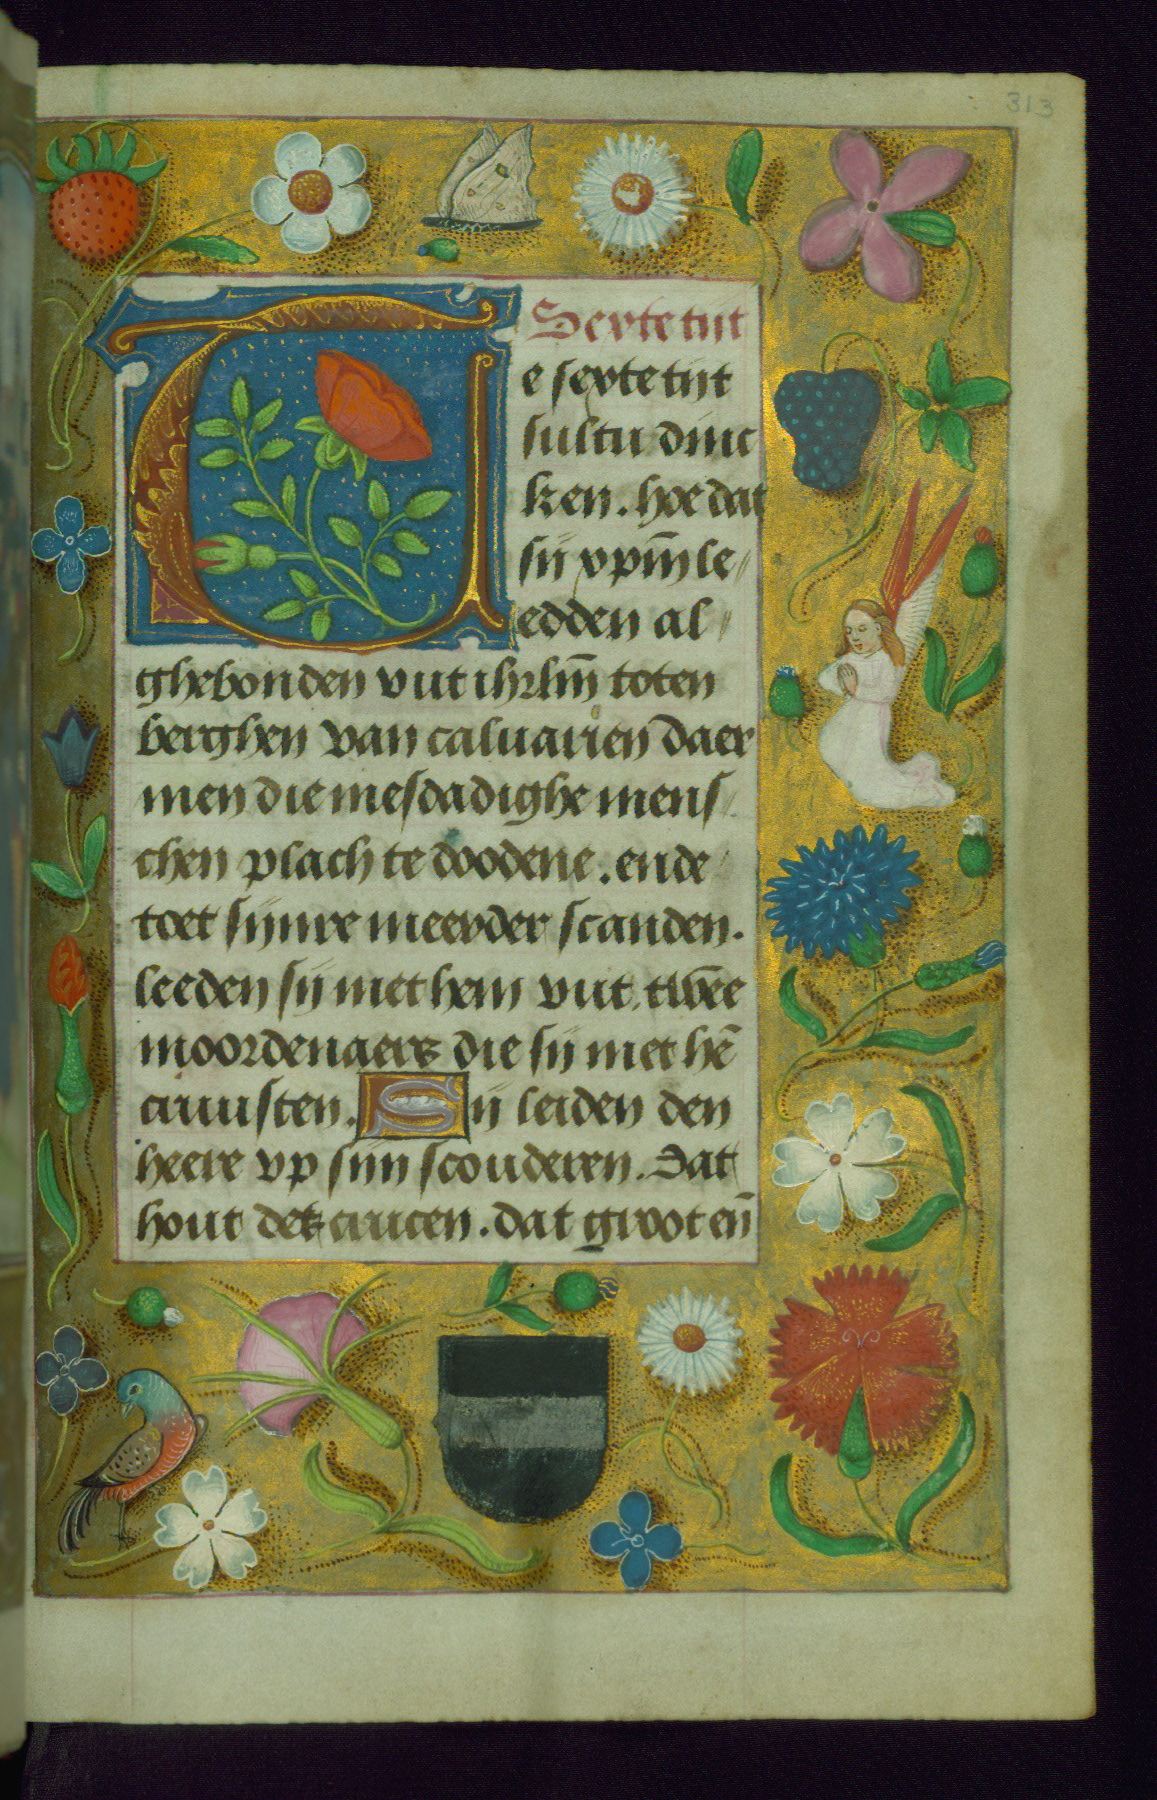 313
Sexte tijt
Te sexte tijt
sultu dinc
ken. hoe dat
sij vpīnle//
edden al//
ghebonden vut ihrlm̄ toten
berghen van caluarien daer
men die mesdadighe mens//
chen plach te doodene. ende
toet sijnre meerder scanden.
leeden sij met hem vut. twēe
moordenaers die sij met hē
cruusten. Sij leiden den
heere vp sijn scouderen. Dat
hout des crucen. dat groot en̄